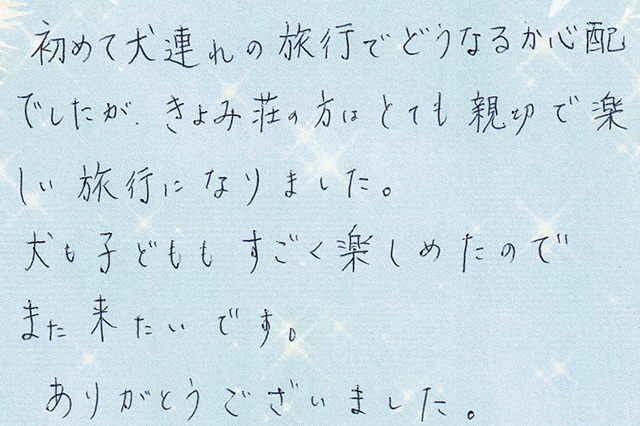 初めて犬連れの旅行でどうなるか心配
でしたが、きよみ荘の方はとても親切で楽
しい旅行になりました。
犬も子どももすごく楽しめたので
また来たいです。
ありがとうございました。